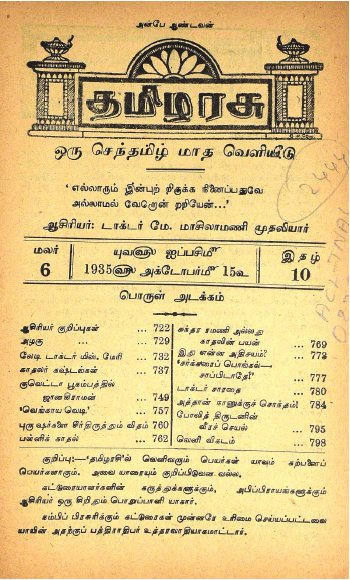 அன்பே ஆண்டவன்
தமிழரசு
ஒரு செந்தமிழ் மாத வெளியீடு
'எல்லாரும் இன்புற் றிருக்க நினைப்பதுவே
அல்லாமல் வேறொன் றறியேன்...'
ஆசிரியர்: டாக்டர் மே. மாசிலாமணி முதலியார்
மலர் 6
யுவ௵ ஐப்பசி௴
1935௵ அக்டோபர்௴ 15௳
இதழ் 10
பொருள் அடக்கம்
ஆசிரியர் குறிப்புகள் ... 722
அழகு ... 729
லேடி டாக்டர் மிஸ். மேரி ... 732
காதலர் கஷ்டங்கள் ... 737
குவெட்டா பூகம்பத்தில்
ஜானகிராமன் ... 749
'வெங்காய வெடி' ... 757
புருஷர்களை சீர்திருத்தும் விதம் 760
பன்னிக் காதல் ... 762
சுந்தர ரமணி அல்லது
காதலின் பயன் ... 769
இது என்ன அதிசயம்? ... 773
'சர்க்கரைப் பொங்கல்—
சாப்பிடாதே!' ... 777
டாக்டர் சாரதை ... 780
அத்தான் காணுக்குச் சொந்தம்! 784
போலித் திருடனின்
வீரச் செயல் ... 795
லெனி விகடம் ... 798
குறிப்பு:—'தமிழரசி'ல் வெளிவரும் பெயர்கள் யாவும் கற்பனைப்
பெயர்களாகும். அவை யாரையும் குறிப்பிடுவன வல்ல.
கட்டுரையாளர்களின் கருத்துக்களுக்கும், அபிப்பிராயங்களுக்கும்
ஆசிரியர் ஒரு சிறிதும் பொறுப்பாளி யாகார்.
நம்பிப் பிரசுரிக்கும் கட்டுரைகள் முன்னரே உரிமை செய்யப்பட்டவை
யாயின் அதற்குப் பத்திராதிபர் உத்தரவாதியாகமாட்டார்.